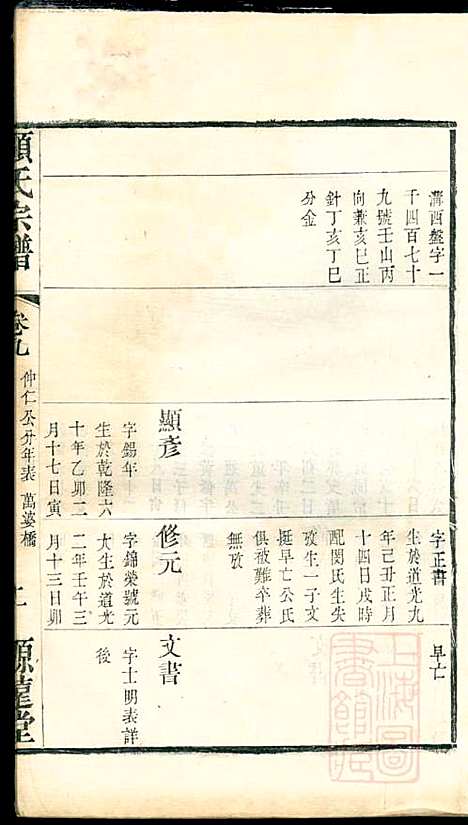 溝西盤字一
千四百七十
九號壬山丙
向兼亥巳正
針丁亥丁巳
分金
顯彥
字錫年
生於乾隆六
十年乙卯二
月十七日寅
字正書
生於道光九
年己丑正月
十四日戌時
配閔氏生失
攷生一子文
挺早亡公氏
俱被難卒葬
無攷
修元
字錦榮號元
大生於道光
二年壬午三
月十三日卯
早亡
文書
字士明表詳
後
顧氏宗譜
卷九
仲仁公分年表
萬婆橋
源遠堂
上海圖書館藏